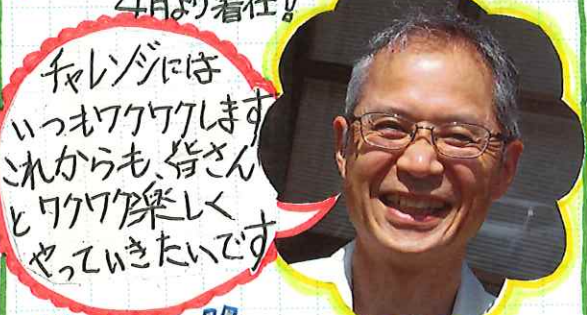 4月より着任!
チャレンジには
いつもワクワクします
これからも、皆さん
とワクワク楽しく
やっていきたいです